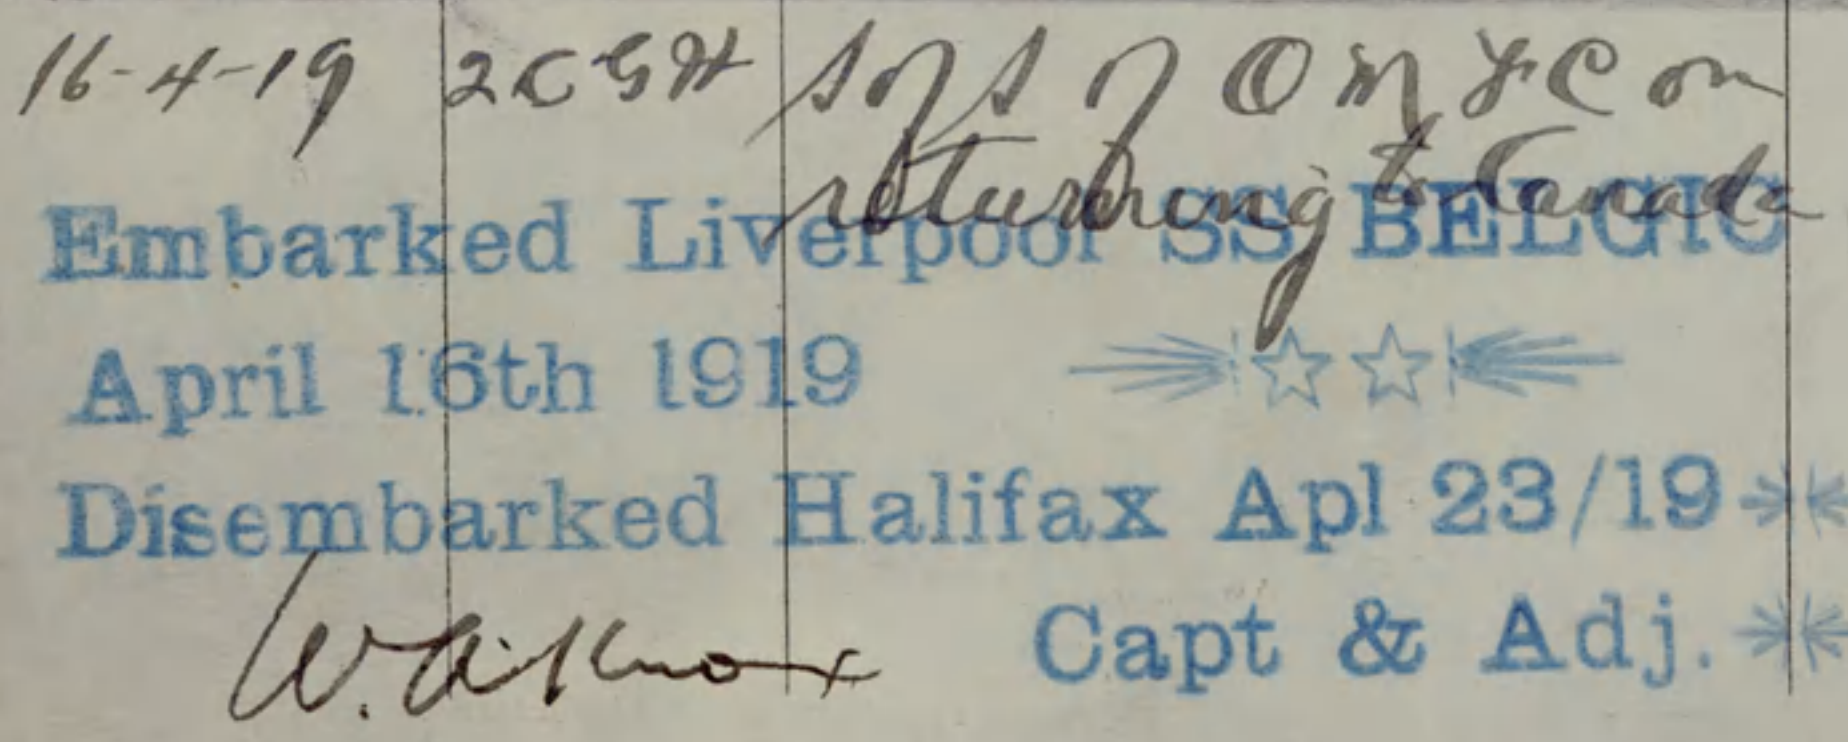 16-4-19 2CGH SOS O M F C on
returning to Canada
Embarked Liverpool SS BELGIC
April 16th 1919
Disembarked Halifax Apl 23/19
W. A. Knox Capt & Adj.